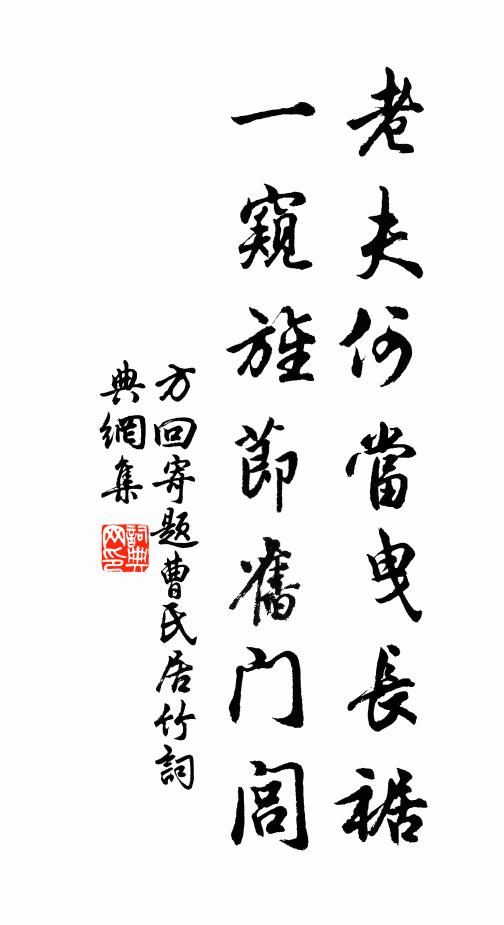 老夫何當曳長裾
一窺旌節舊門閭
方回寄題曹氏居竹詞
典網集
詞典
网印